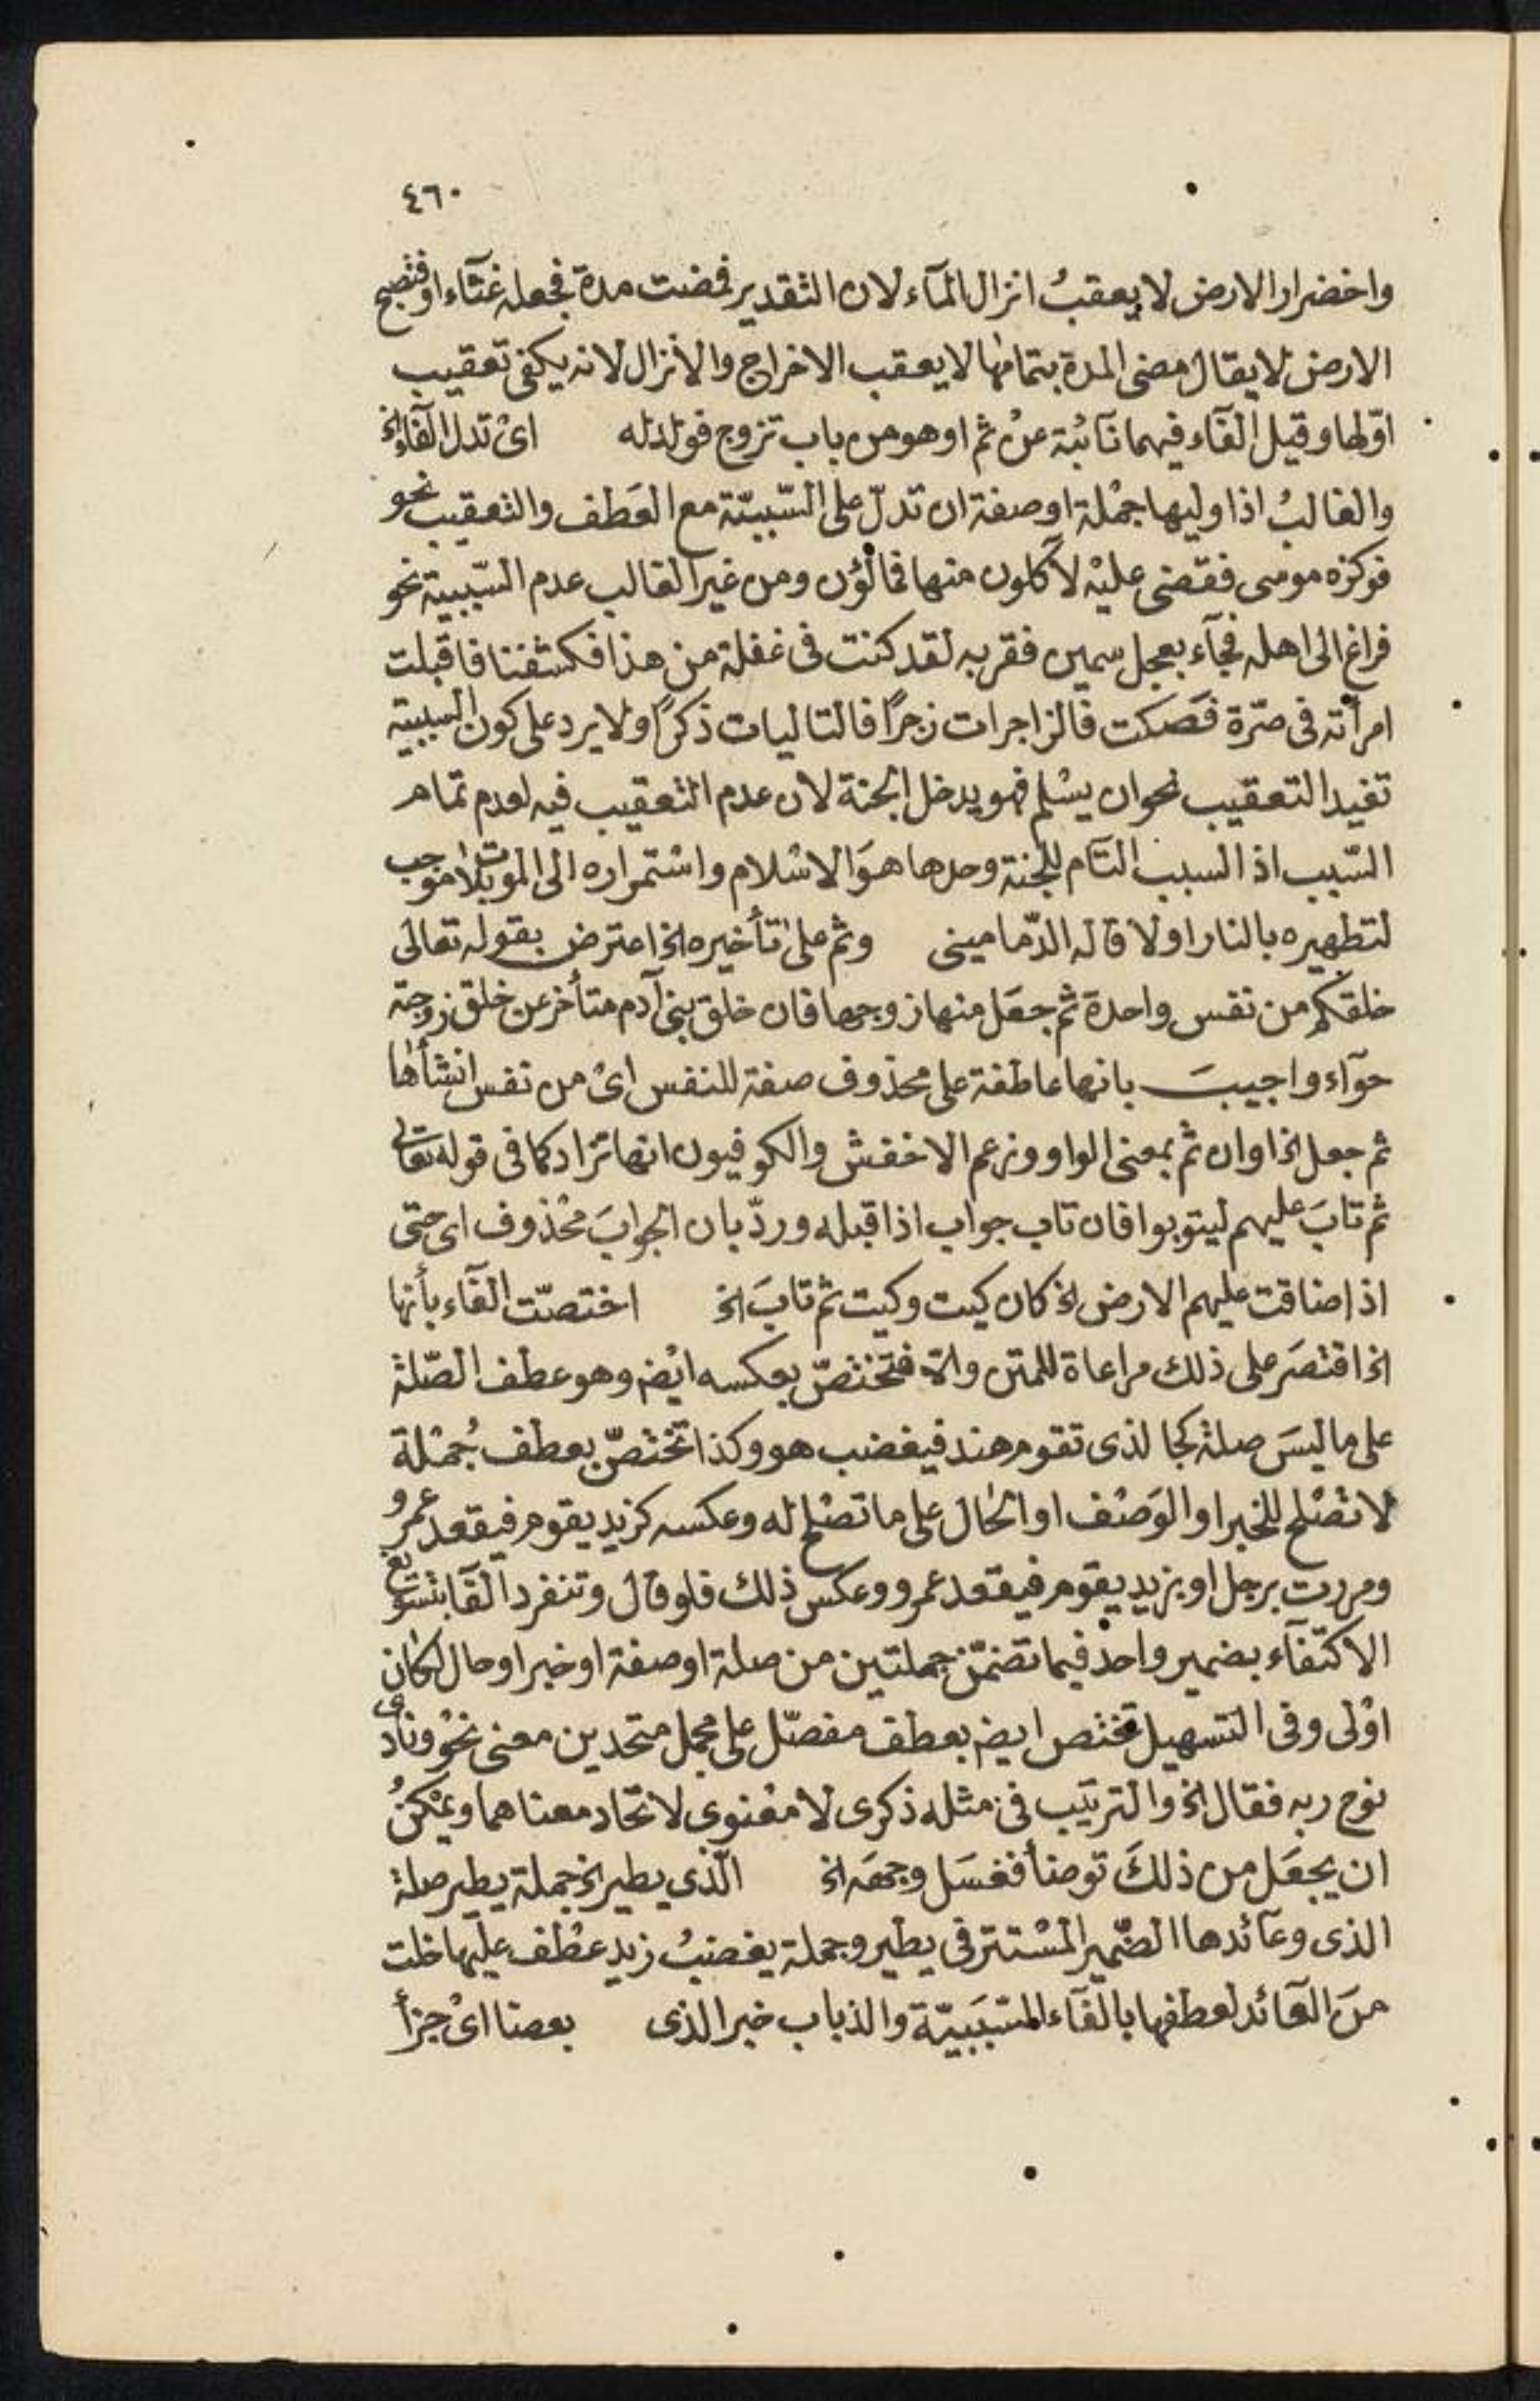 ٤٦٠
واخضرار الارض لا يعقبُ انزال المآء لان التقدير فمضت مدة فجعله غثآء او فتصبح
الارض لا يقال مضى المدة بتمامها لا يعقب الاخراج والانزال لانه يكفى تعقيب
اوّلها وقيل الفآء فيهما نآئبة عن ثم او هو من باب تزوج فولد له اى تدل الفآء الخ
والغالبُ اذا وليها جملة او صفة ان تدلّ على السّببيّة مع العَطف والتعقيب نحو
فوكزه موسى فقضى عليه لآكلون منها فمالؤن ومن غير الغالب عدم السّببية نحو
فراغ الى اهله فجآء بعجل سمين فقربه لقد كنت فى غفلة من هذا فكشفنا فاقبلت
امرأته فى صرّة فصَكت فالزاجرات زجرًا فالتاليات ذكرًا ولا يرد على كون السببية
تفيد التعقيب نحو ان يسلم فهو يدخل الجنة لان عدم التعقيب فيه لعدم تمام
السّبب اذ السبب التام للجنة وحدها هوَ الاسْلام واستمراره الى الموت بلا موجب
لتطهيره بالنار اولا قاله الدّمامينى وثم على تأخيره الخ اعترض بقوله تعالى
خلقكم من نفس واحدة ثم جعَل منها زوجها فان خلق بنى آدم متأخر عن خلق زوجته
حوّآء واجيبَ بانها عاطفة على محذوف صفة للنفس اى من نفس انشأها
ثم جعل الخ او ان ثم بمعنى الواو وزعم الاخفش والكوفيون انها تزاد كما فى قوله تعالى
ثم تابَ عليهم ليتوبوا فان تاب جواب اذا قبله وردّ بان الجوابَ محْذوف اى حتى
اذا ضاقت عليهم الارض الخ كان كيت وكيت ثم تابَ الخ اختصّت الفآء بأنها
الخ اقتصَر على ذلك مراعاة للمتن والا فتختصّ بعكسه ايْضا وهو عطف الصّلة
على ما ليسَ صلة كجا لذى تقوم هند فيغضب هو وكذا تختصّ بعطف جُملة
لا تصْلح للخبر او الوَصْف او الحال على ما تصْلح له وعكسه كزيد يقوم فيقعد عمرو
ومررت برجل او بزيد يقوم فيقعد عمرو وعكس ذلك فلو قال وتنفرد الفآ بتسويغ
الاكتفآء بضمير واحد فيما تضمّن جملتين من صلة او صفة او خبر او حال لكان
اوْلى وفى التسهيل تختص ايضا بعطف مفصّل على مجمل متحدين معنى نحو ونادى
نوح ربه فقال الخ والترتيَب فى مثله ذكرى لا معْنوى لاتحاد معناهما ويمْكنُ
ان يجعَل من ذلكَ توضأ فغسَل وجهَه الخ الّذى يطير الخ جملة يطير صلة
الذى وعآئدها الضّمير المسْتتر فى يطير وجملة يغضبُ زيد عطْف عليها خلت
منَ العآئد لعطفها بالفآء السّببَيّة والذباب خبر الذى بعضا اى جزأ